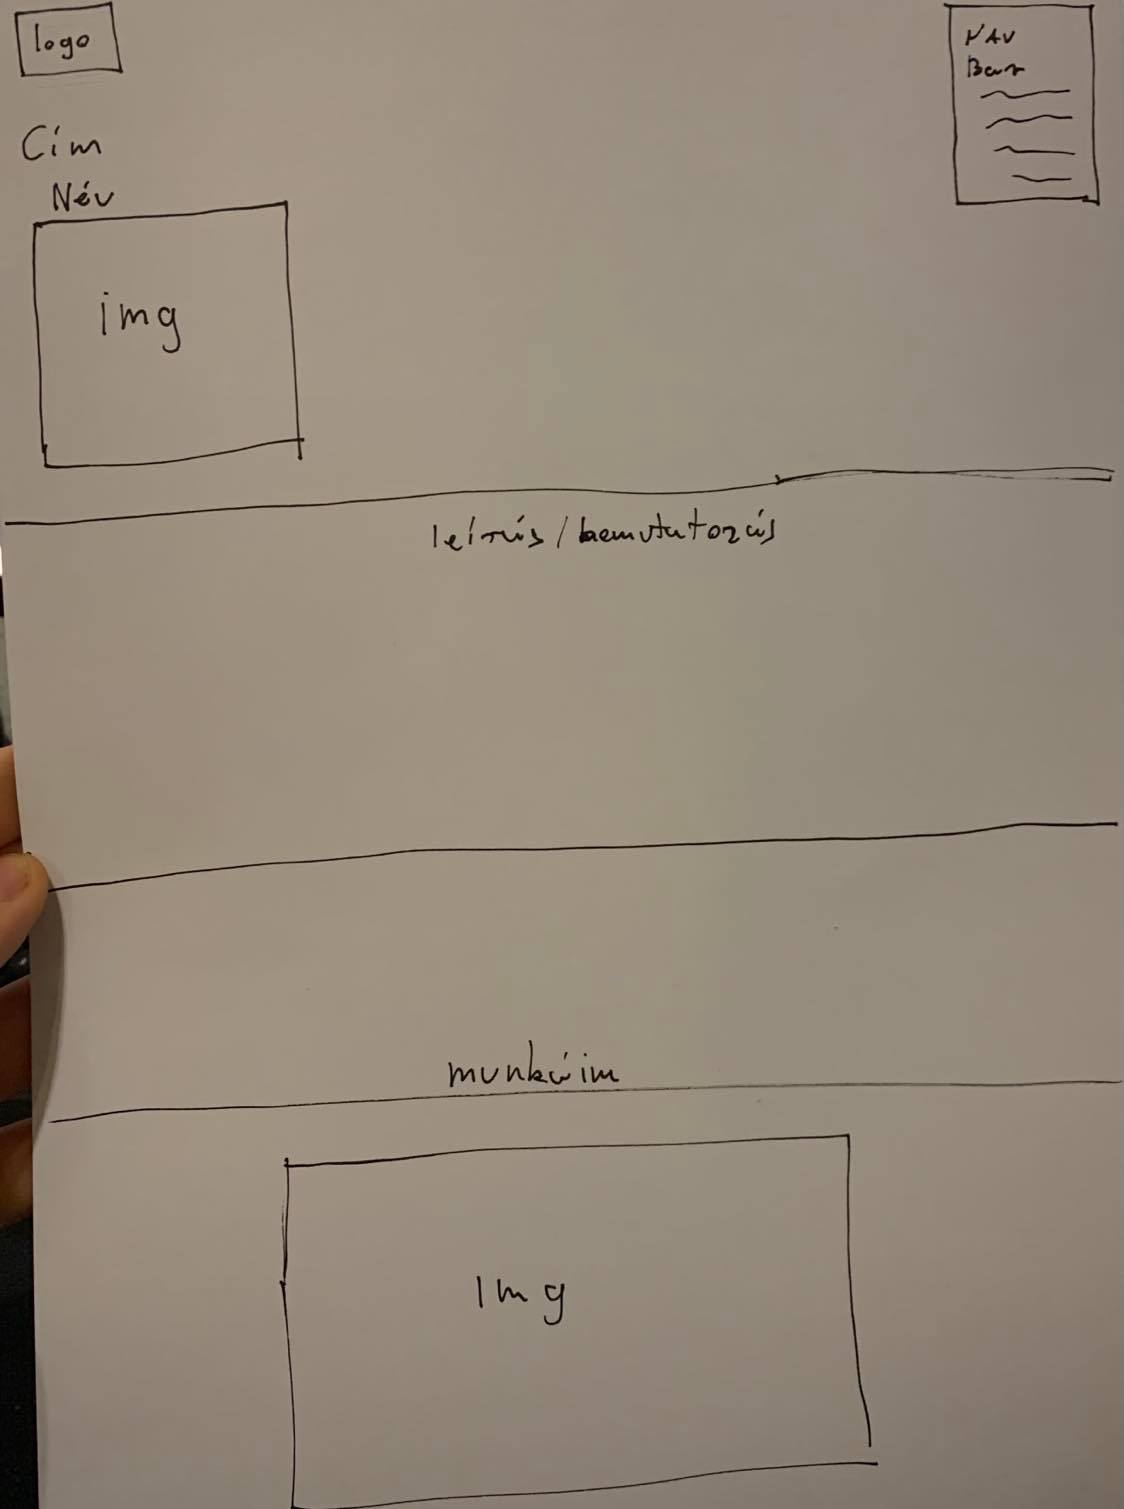 logo
NAV
Bar
Cím
Név
img
leírás / bemutatozás
munkáim
Img